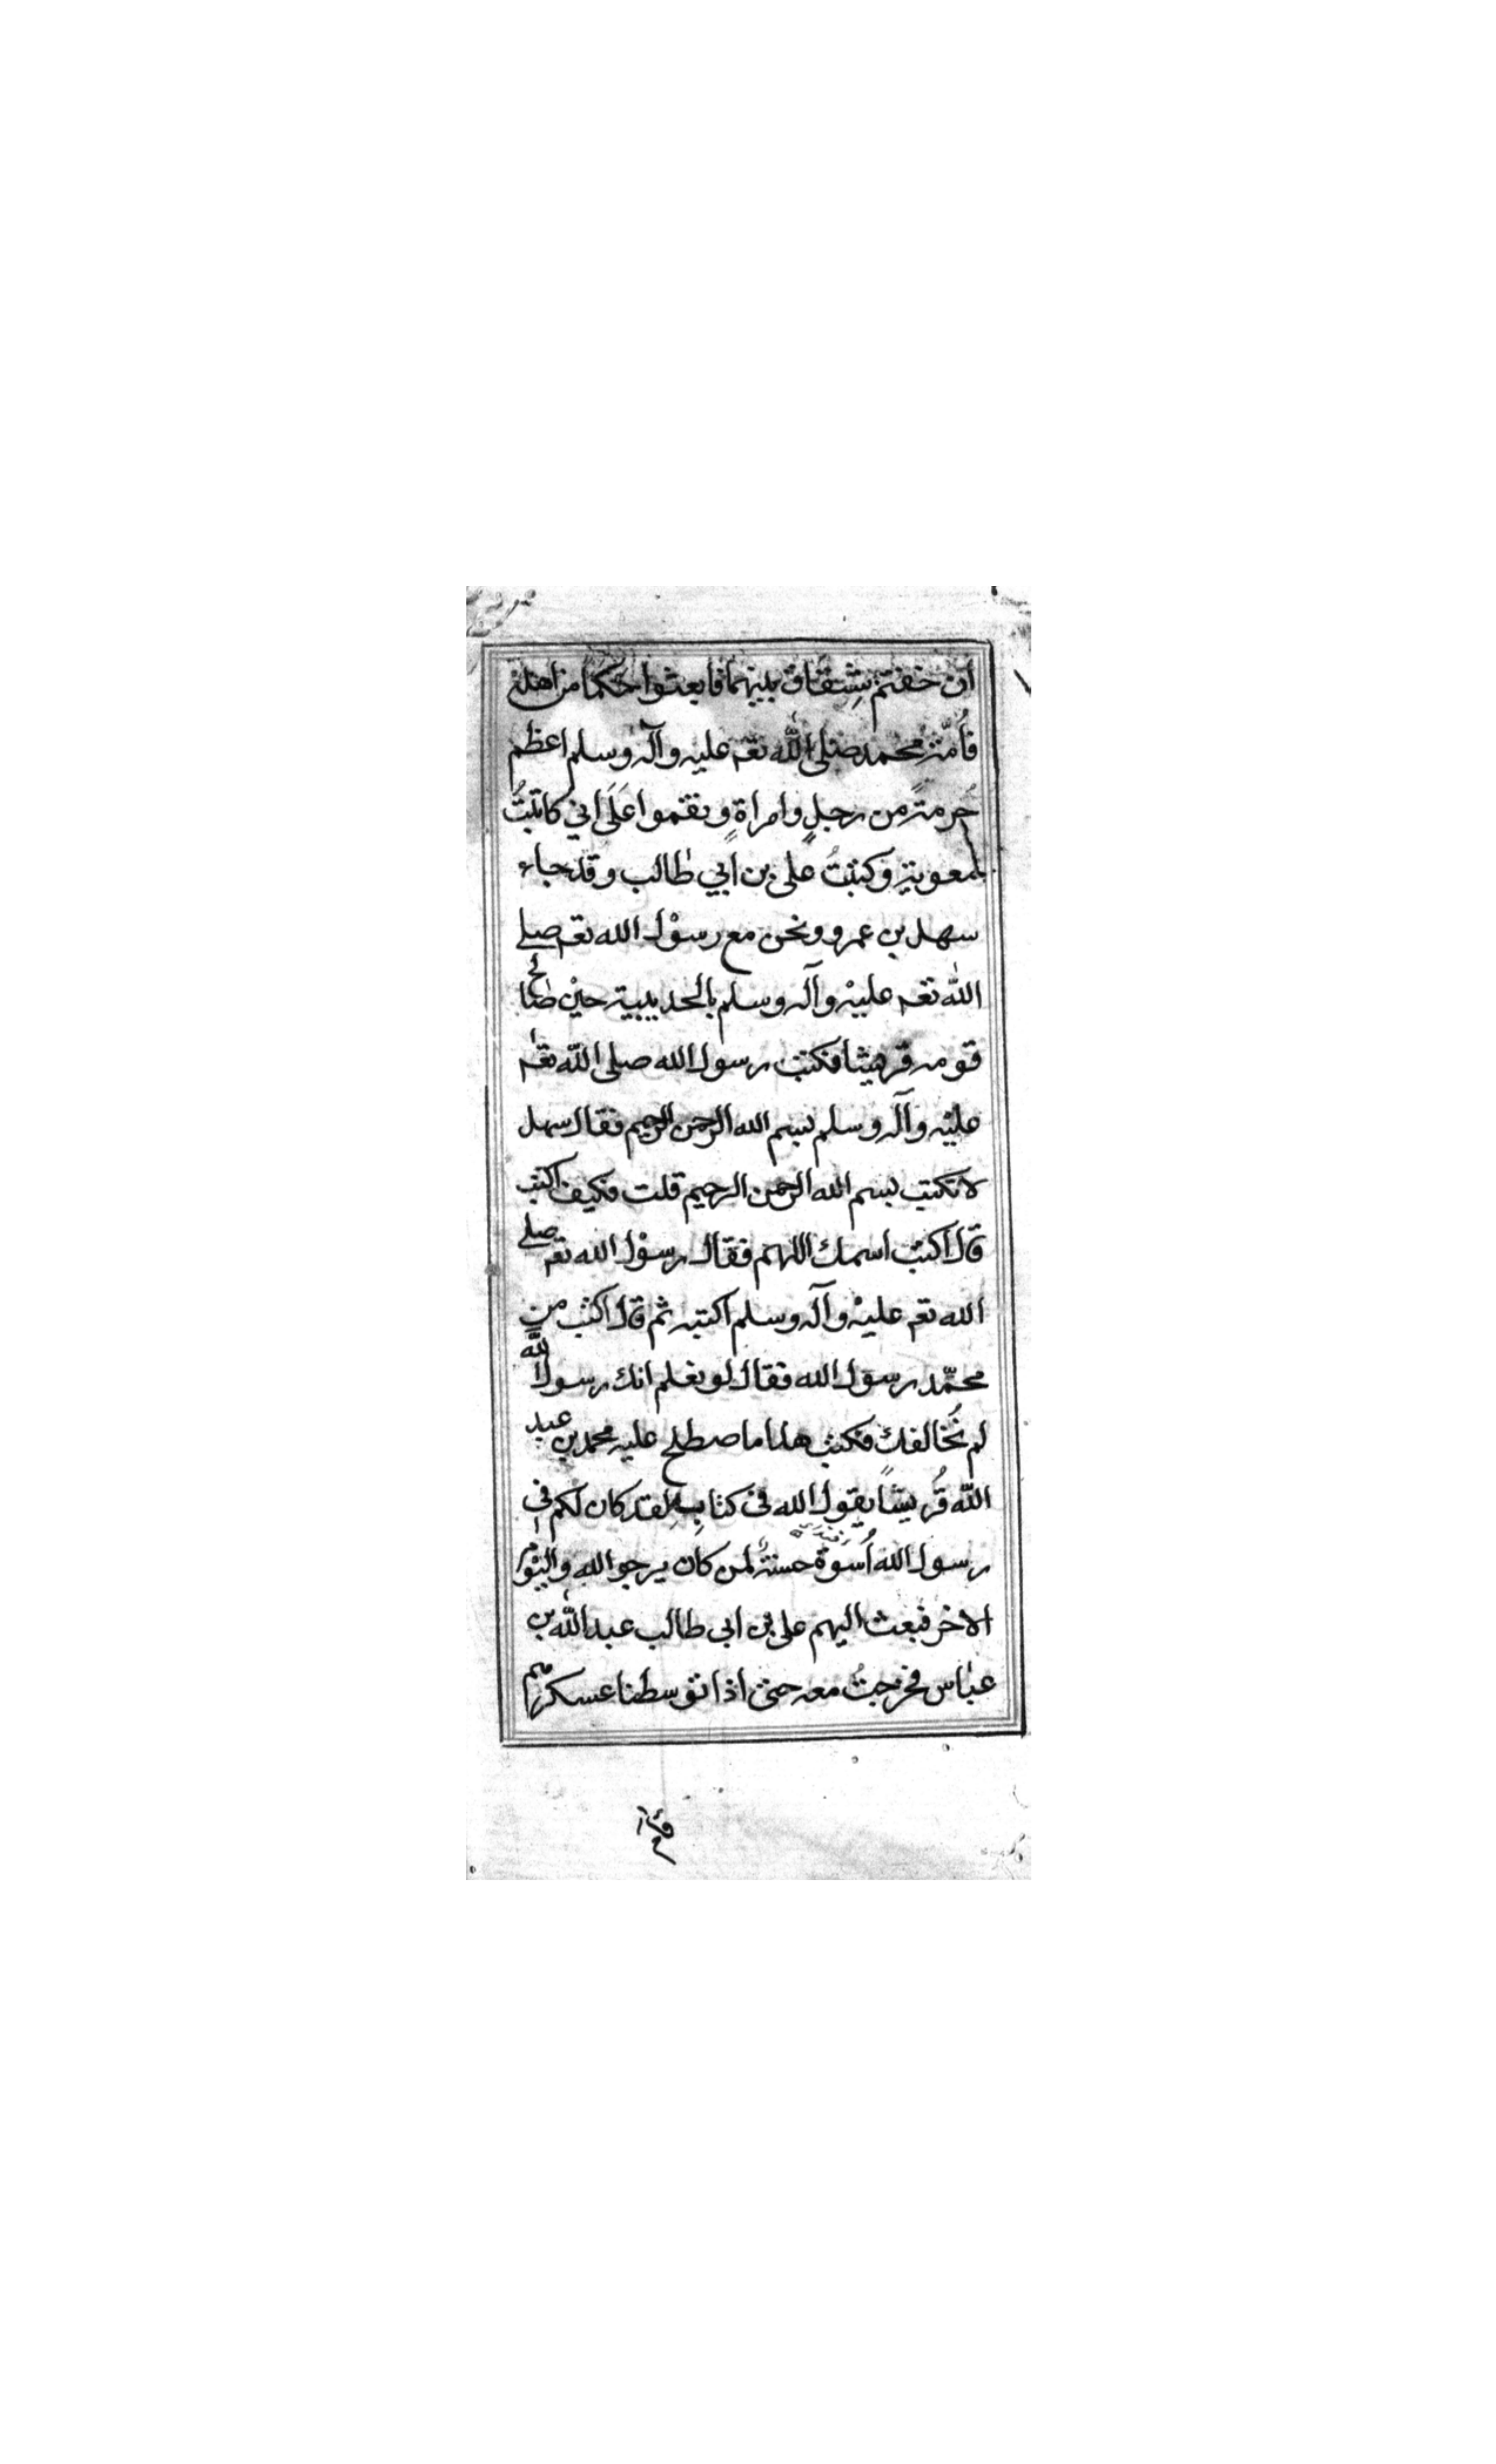 ان خفتم شِقَاق بينهما فابعثوا حَكَمًا من اهله
فأُمّة محمد صلى اللّٰه تعم عليه وآله وسلم اعظم
حُرمةً من رجلٍ وامراةٍ ونقموا عَلَى انى كاتبتُ
معوية وكتبتُ على بن أبي طالب وقد جاء
سهل بن عمرو ونحن مع رسوْل الله تعم صلى
اللّٰه تعم عليْه وآله وسلم بالحديبية حيْن صالح
قومه قريشا فكتب رسول الله صلى اللّٰه تعم
عليْه وآله وسلم بسم الله الرحمن الرحيم فقال سهل
لا تكتب بسم الله الرحمن الرحيم قلت فكيف اكتب
قال اكتب اسمك اللهم فقال رسوْل الله تعم صلى
الله تعم عليْه وآله وسلم اكتبه ثم قال اكتب من
محمّد رسوْل الله فقال لو نعلم انك رسول اللّٰه
لم نُخالفك فكتب هذا ما صطلح عليه محمد بن عبد
اللّٰه قُريشًا يقول الله فى كتابِه لقد كان لكم فى
رسول الله أُسْوَة حسنة لمن كان يرجو الله واليوْم
الاخر فبعث اليهم على بن ابى طالب عبد اللّٰه بن
عبّاس فخرجتُ معه حتى اذا توسطنا عسكرهم